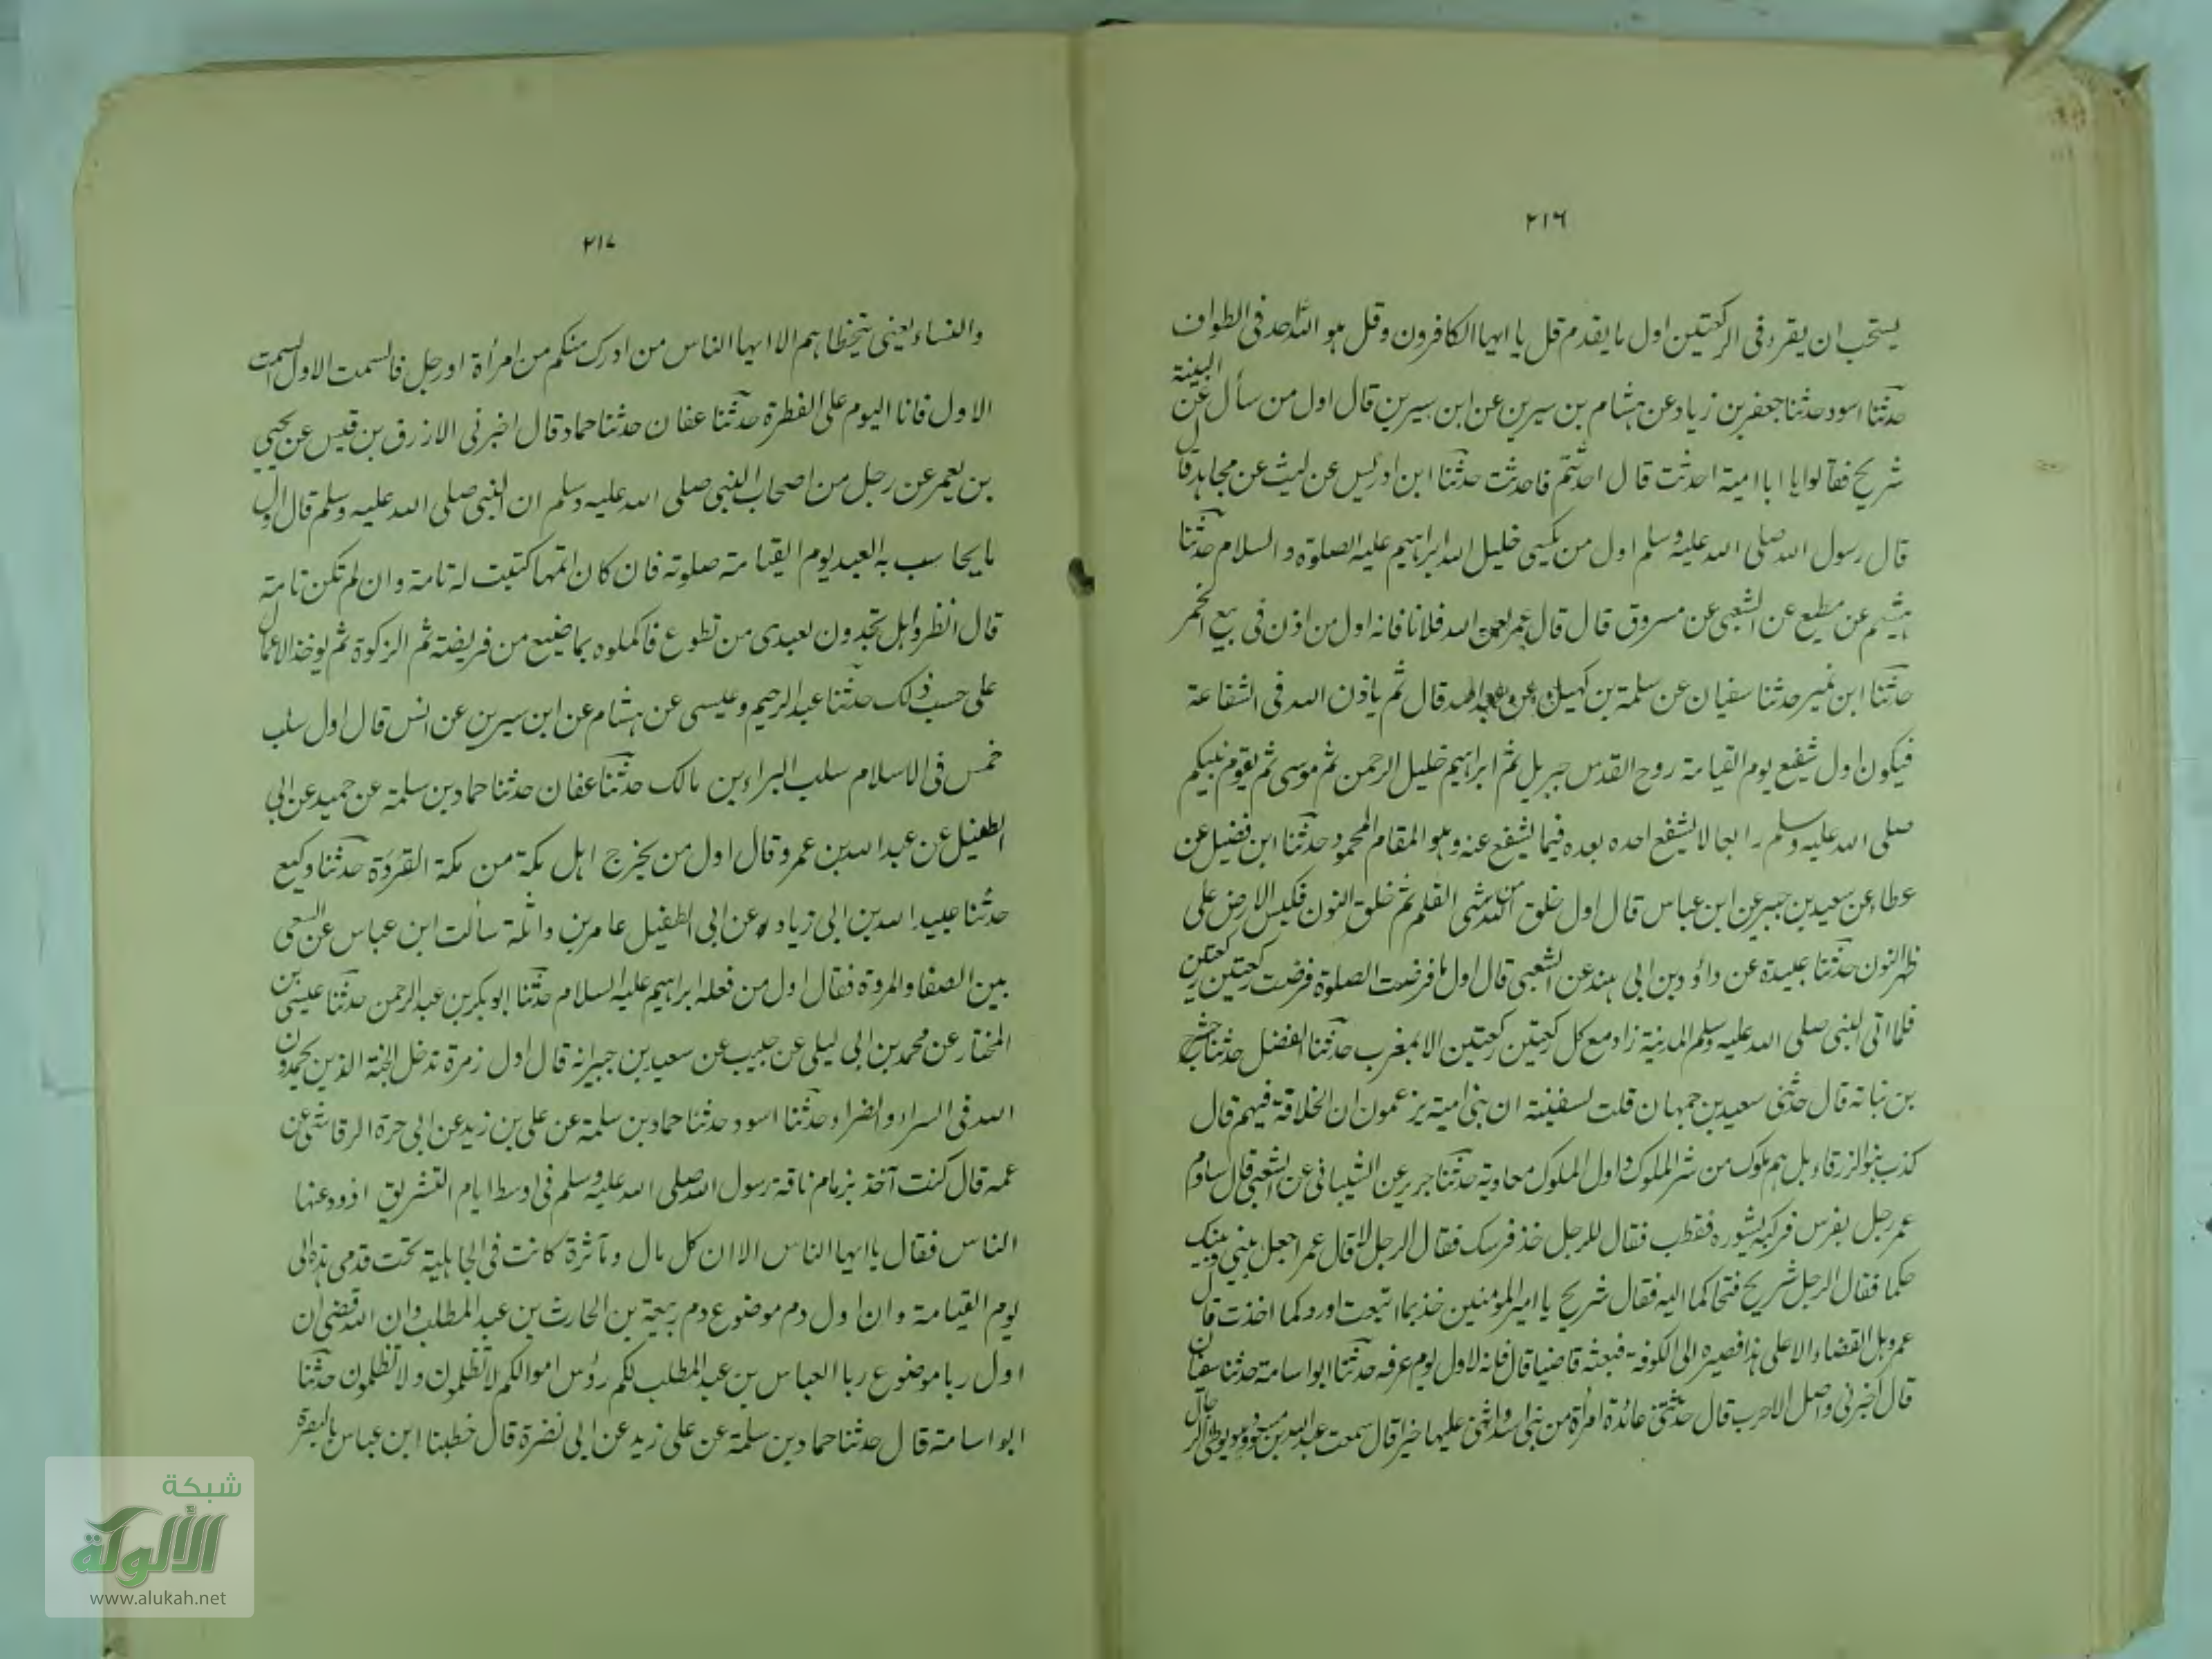 ٢١٦
يستحب ان يقرء فى الركعتين اول ما يقدم قل يا ايها الكافرون وقل هو الله احد فى الطواف
حدثنا اسود حدثنا جعفر بن زياد عن هشام بن سيرين عن ابن سيرين قال اول من سأل عن البينة
شريح فقالوا يا ابا امية احدثت قال احدثتم فاحدثت حدثنا ابن ادريس عن ليث عن مجاهد قال
قال رسول الله صلى الله عليه وسلم اول من يكسى خليل الله ابراهيم عليه الصلوة والسلام حدثنا
هشيم عن مطيع عن الشعبى عن مسروق قال قال عمر لعن الله فلانا فانه اول من اذن فى بيع الخمر
حدثنا ابن نمير حدثنا سفيان عن سلمة بن كهيل عن قال ثم ياذن الله فى الشفاعة
فيكون اول شفيع يوم القيامة روح القدس جبريل ثم ابراهيم خليل الرحمن ثم موسى ثم يقوم نبيكم
صلى الله عليه وسلم رابعا لا يشفع احده بعده فيما يشفع عنه وهو المقام المحمود حدثنا ابن فضيل عن
عطاء عن سعيد بن جبير عن ابن عباس قال اول خلق الله من شئ القلم ثم خلق النون فكبس الارض على
ظهر النون حدثنا عبيدة عن داؤد بن ابى هند عن الشعبى قال اول ما فرضت الصلوة فرضت ركعتين ركعتين
فلما اتى النبى صلى الله عليه وسلم المدينة زاد مع كل ركعتين ركعتين الا المغرب حدثنا الفضل حدثنا حشرج
بن نباتة قال حدثنى سعيد بن جمهان قلت لسفينة ان بنى امية يزعمون ان الخلافة فيهم قال
كذب بنو الزرقاء بل هم ملوك من شر الملوك واول الملوك معاوية حدثنا جرير عن الشيبانى عن الشعبى قال ساوم
عمر رجل بفرس فركبه يشوره فقطب فقال للرجل خذ فرسك فقال الرجل لا قال عمر اجعل بينى وبينك
حكما فقال الرجل شريح فتحاكما اليه فقال شريح يا امير المؤمنين خذ بما ابتعت اورد كما اخذت قال
عمر وهل القضاء الا على هذا فصيره الى الكوفة فبعثه قاضيا قال فانه لاول يوم عرفه حدثنا ابو اسامة حدثنا سفيان
قال اخبرنى واصل الاحدب قال حدثتنى عائذة امرأة من بنى اسد واثنى عليها خيرا قال سمعت عبد الله بن مسعود وهو يوطئ الرجال
٢١٧
والنساء يعنى يتخطاهم الا ايها الناس من ادرك منكم من امرأة اورجل فالسمت الاول السمت
الاول فانا اليوم على الفطرة حدثنا عفان حدثنا حماد قال اخبرنى الازرق بن قيس عن يحيى
بن يعمر عن رجل من اصحاب النبى صلى الله عليه وسلم ان النبى صلى الله عليه وسلم قال اول
ما يحاسب به العبد يوم القيامة صلوته فان كان اتمها كتبت له تامة وان لم تكن تامة
قال انظروا هل تجدون لعبدى من تطوع فاكملوه بما ضيع من فريضته ثم الزكوة ثم يوخذ الاعمال
على حسب ذلك حدثنا عبد الرحيم وعيسى عن هشام عن ابن سيرين عن انس قال اول سلب
خمس فى الاسلام سلب البراء بن مالك حدثنا عفان حدثنا حماد بن سلمة عن حميد عن ابى
الطفيل عن عبد الله بن عمرو قال اول من يخرج اهل مكة من مكة القردة حدثنا وكيع
حدثنا عبيد الله بن ابى زياد عن ابى الطفيل عامر بن واثلة سألت ابن عباس عن السعى
بين الصفا والمروة فقال اول من فعله ابراهيم عليه السلام حدثنا ابوبكر بن عبد الرحمن حدثنا عيسى بن
المختار عن محمد بن ابى ليلى عن حبيب عن سعيد بن جبير انه قال اول زمرة تدخل الجنة الذين يحمدون
الله فى السراء والضراء حدثنا اسود حدثنا حماد بن سلمة عن على بن زيد عن ابى حرة الرقاشى عن
عمه قال كنت آخذ بزمام ناقة رسول الله صلى الله عليه وسلم فى اوسط ايام التشريق اذود عنها
الناس فقال يا ايها الناس الا ان كل مال ومآثرة كانت فى الجاهلية تحت قدمى هذه الى
يوم القيامة وان اول دم موضوع دم ربيعة بن الحارث بن عبد المطلب وان الله قضى ان
اول ربا موضوع ربا العباس بن عبد المطلب لكم رؤس اموالكم لا تظلمون ولا تظلمون حدثنا
ابو اسامة قال حدثنا حماد بن سلمة عن على زيد عن ابى نضرة قال خطبنا ابن عباس بالبصرة
شبكة
الألوكة
www.alukah.net